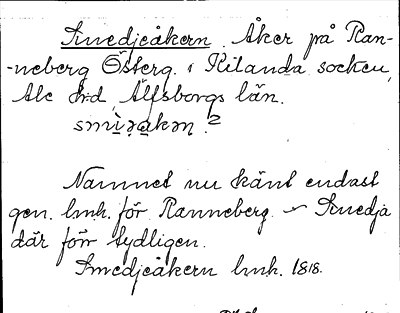 Smedjeåkern. Åker på Ran-
-neberg Österg. i Kilanda socken,
Ale hrd, Älfsborgs län.
Namnet nu känt endast
gen. lmk. för Ranneberg. Smedja
där förr tydligen.
Smedjeåkern lmk. 1818.